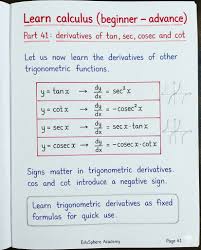 Learn calculus (beginner – advance)
Part 41: derivatives of tan, sec, cosec and cot
Let us now learn the derivatives of other
trigonometric functions.
y = tan x → dy/dx = sec² x
y = cot x → dy/dx = -cosec² x
y = sec x → dy/dx = sec x · tan x
y = cosec x → dy/dx = -cosec x · cot x
Signs matter in trigonometric derivatives.
cos and cot introduce a negative sign.
Learn trigonometric derivatives as fixed
formulas for quick use.
EduSphere Academy
Page 41